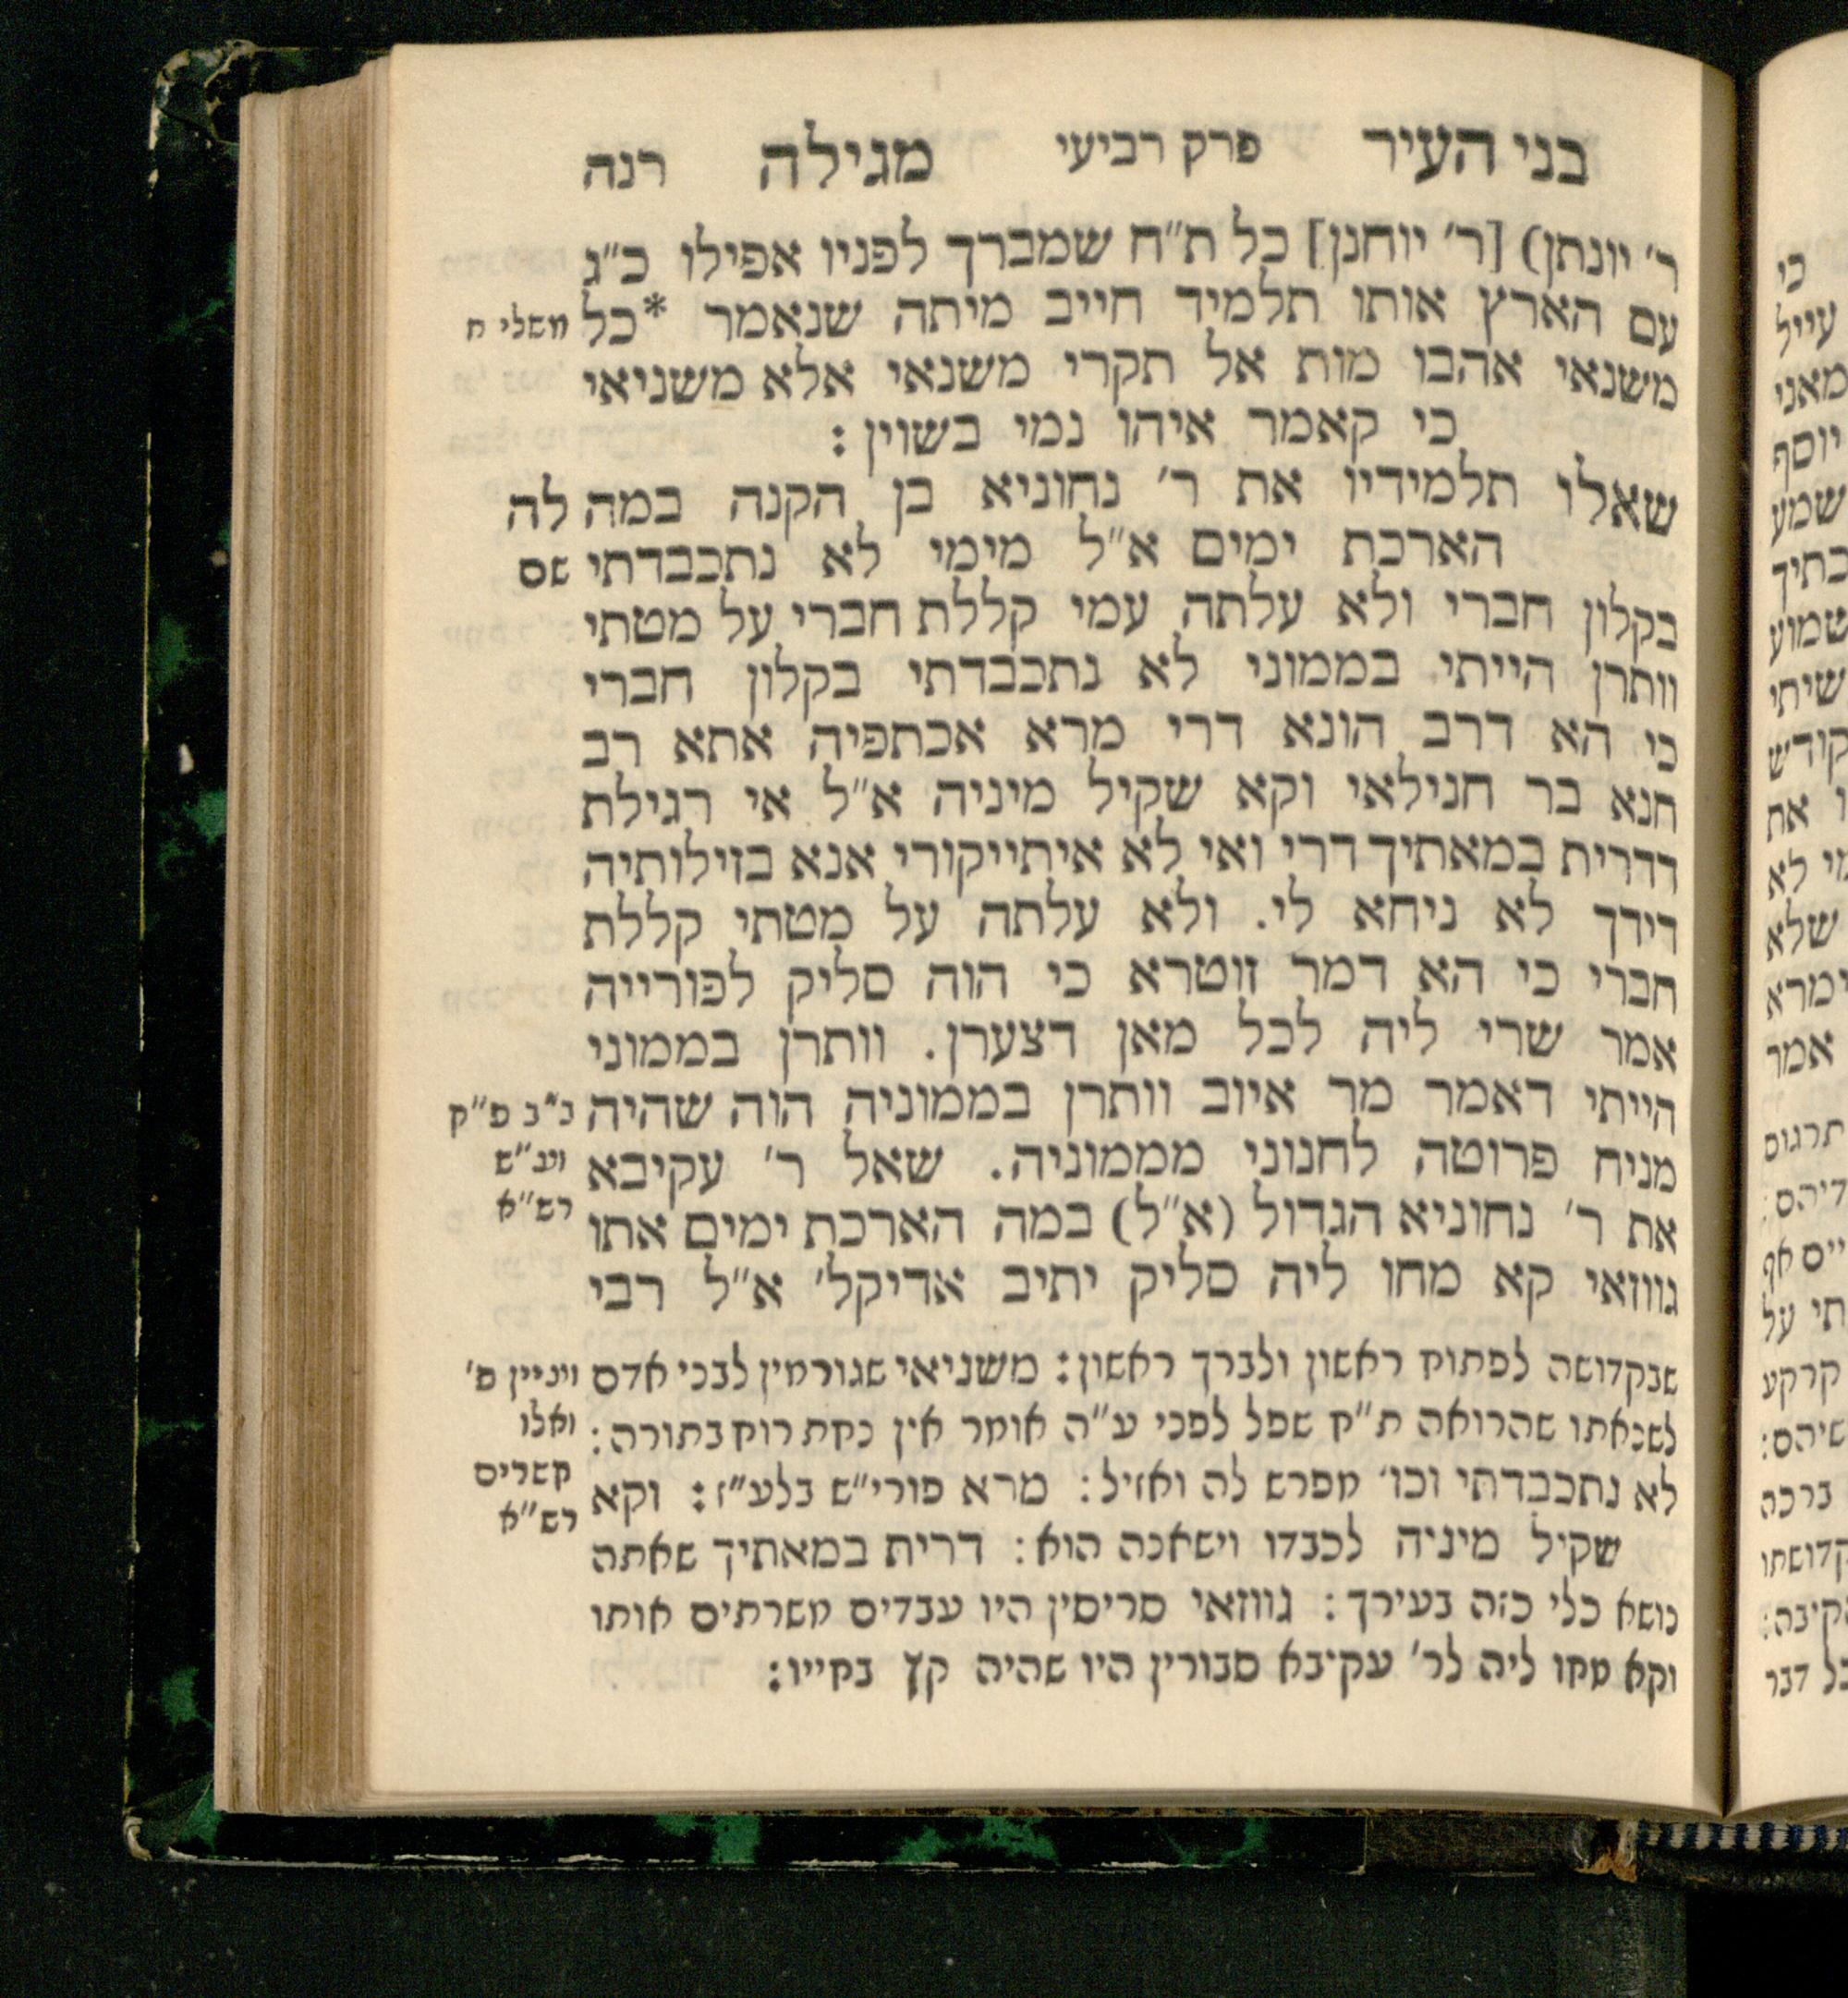 בני העיר פרק רביעי מגילה רנה
ר׳ יונתן) [ר׳ יוחנן] כל ת״ח שמברך לפניו אפילו כ״ג
עם הארץ אותו תלמיד חייב מיתה שנאמר *כל משלי ח
משנאי אהבו מות אל תקרי משנאי אלא משניאי
כי קאמר איהו נמי בשוין:
שאלו תלמידיו את ר׳ נחוניא בן הקנה במה לה
הארכת ימים א״ל מימי לא נתכבדתי שם
בקלון חברי ולא עלתה עמי קללת חברי על מטתי
וותרן הייתי בממוני לא נתכבדתי בקלון חברי
כי הא דרב הונא דרי מרא אכתפיה אתא רב
חנא בר חנילאי וקא שקיל מיניה א״ל אי רגילת
דדרית במאתיך דרי ואי לא איתייקורי אנא בזילותיה
דידך לא ניחא לי. ולא עלתה על מטתי קללת
חברי כי הא דמר זוטרא כי הוה סליק לפורייה
אמר שרי ליה לכל מאן דצערן. וותרן בממוני
הייתי דאמר מר איוב וותרן בממוניה הוה שהיה ב״ב פ״ק
מניח פרוטה לחנוני מממוניה. שאל ר׳ עקיבא ועב״ש
את ר׳ נחוניא הגדול (א״ל) במה הארכת ימים אתו רש״א
גווזאי קא מחו ליה סליק יתיב אדיקל׳ א״ל רבי
שבקדושה לפתוח ראשון ולברך ראשון: משניאי שגורמין לבני אדם ועיין פ׳
לשנאתו שהרואה ת״ח שפל לפני ע״ה אומר אין נחת רוח בתורה: ואלו
לא נתכבדתי וכו׳ מפרש לה ואזיל: מרא פורי״ש בלע״ז: וקא קשרים
רש״א
שקיל מיניה לכבדו וישאנה הוא: דרית במאתיך שאתה
נושא כלי כזה בעירך: גווזאי סריסין היו עבדים משרתים אותו
וקא מחו ליה לר׳ עקיבא סבורין היו שהיה קץ בחייו:
כי
עייל
מאני
יוסף
שמע
בתיך
שמוע
שיחי
קודש
ו את
מי לא
שלא
ימרא
אמר
תרגום
דיהם:
יים אף
תי על
קרקע
שיהם:
ברכה
קדושתו
קיבה:
כל דבר